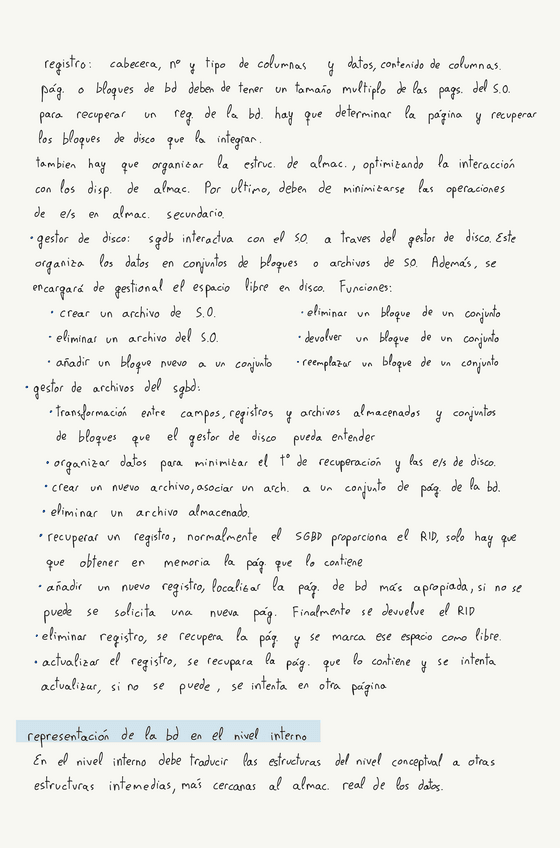 registro: cabecera, nº y tipo de columnas y datos, contenido de columnas.
pág. o bloques de bd deben de tener un tamaño multiplo de las pags. del S.O.
para recuperar un reg. de la bd. hay que determinar la página y recuperar
los bloques de disco que la integran.
tambien hay que organizar la estruc. de almac., optimizando la interacción
con los disp. de almac. Por ultimo, deben de minimizarse las operaciones
de e/s en almac. secundario.
• gestor de disco: sgdb interactua con el SO. a traves del gestor de disco. Este
organiza los datos en conjuntos de bloques o archivos de SO. Además, se
encargará de gestional el espacio libre en disco. Funciones:
• crear un archivo de S.O.
• eliminar un archivo del S.O.
• añadir un bloque nuevo a un conjunto
• eliminar un bloque de un conjunto
• devolver un bloque de un conjunto
• reemplazar un bloque de un conjunto
• gestor de archivos del sgbd:
• transformación entre campos, registros y archivos almacenados y conjuntos
de bloques que el gestor de disco pueda entender
• organizar datos para minimizar el tº de recuperación y las e/s de disco.
• crear un nuevo archivo, asociar un arch. a un conjunto de pág. de la bd.
• eliminar un archivo almacenado.
• recuperar un registro, normalmente el SGBD proporciona el RID, solo hay que
que obtener en memoria la pág. que lo contiene
• añadir un nuevo registro, localizar la pág. de bd más apropiada, si no se
puede se solicita una nueva pág. Finalmente se devuelve el RID
• eliminar registro, se recupera la pág. y se marca ese espacio como libre.
• actualizar el registro, se recupara la pág. que lo contiene y se intenta
actualizar, si no se puede, se intenta en otra página
representación de la bd en el nivel interno
En el nivel interno debe traducir las estructuras del nivel conceptual a otras
estructuras intemedias, más cercanas al almac. real de los datos.